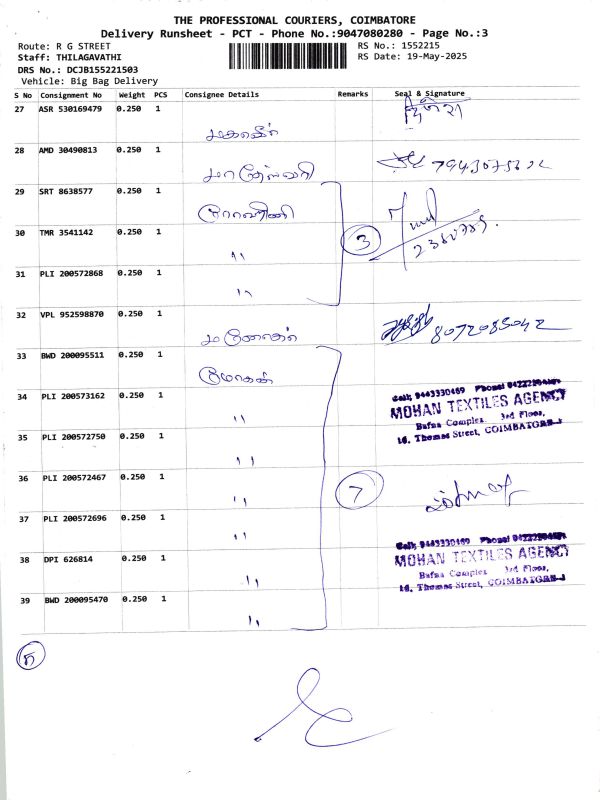 THE PROFESSIONAL COURIERS, COIMBATORE
Delivery Runsheet - PCT - Phone No.:9047080280 - Page No.:3
Route: R G STREET
RS No.: 1552215
Staff: THILAGAVATHI
RS Date: 19-May-2025
DRS No.: DCJB155221503
Vehicle: Big Bag Delivery
S No Consignment No Weight PCS Consignee Details Remarks Seal & Signature
27 ASR 530169479 0.250 1
28 AMD 30490813 0.250 1
29 SRT 8638577 0.250 1
30 TMR 3541142 0.250 1 "
3
31 PLI 200572868 0.250 1 "
32 VPL 952598870 0.250 1 மனோகர் 8072085042
33 BWD 200095511 0.250 1 மோகன்
34 PLI 200573162 0.250 1 "
MOHAN TEXTILES AGENCY
Bafna Complex, 3rd Floor,
16, Thomas Street, COIMBATORE-1
35 PLI 200572750 0.250 1 "
36 PLI 200572467 0.250 1 "
7
37 PLI 200572696 0.250 1 "
38 DPI 626814 0.250 1 "
MOHAN TEXTILES AGENCY
Bafna Complex, 3rd Floor,
16, Thomas Street, COIMBATORE-1
39 BWD 200095470 0.250 1 "